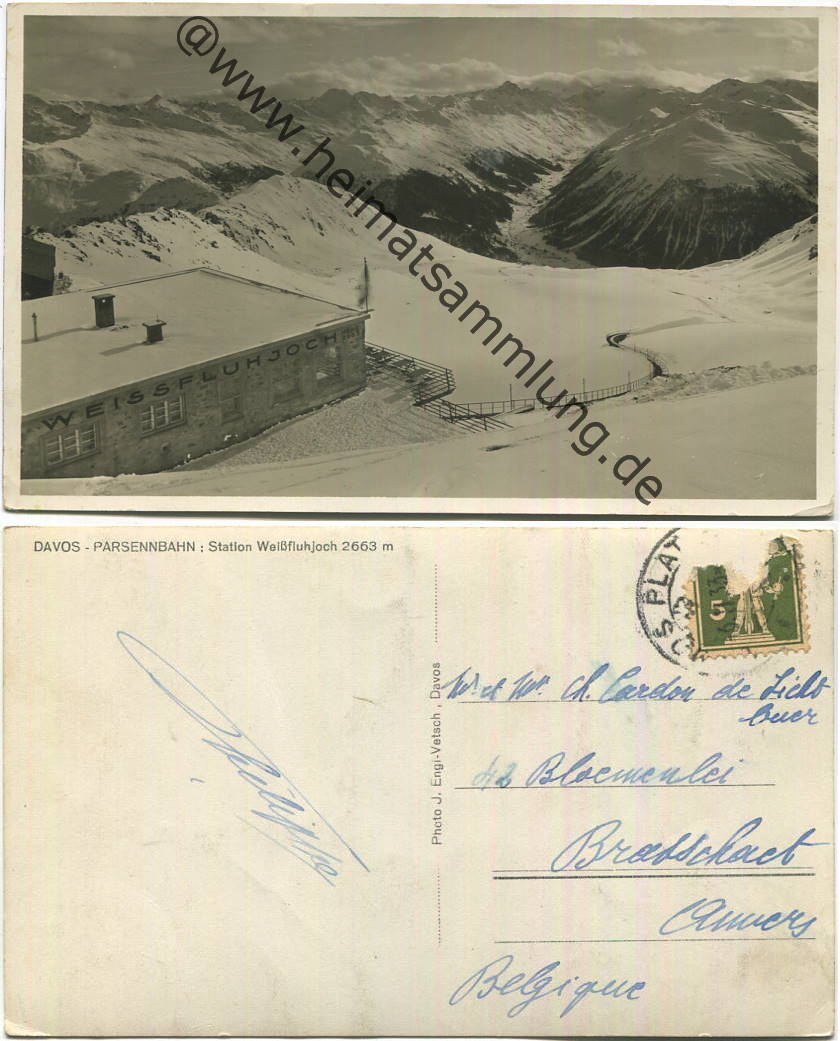 @www.heimatsammlung.de
WEISSFLUHJOCH
DAVOS - PARSENNBAHN : Station Weißfluhjoch 2663 m
OS PLAT
5
Photo J. Engi-Vetsch, Davos
Philippe
Mr et Mme Ch. Cardon de Licht
buer
42 Bloemenlei
Brasschaet
Anvers
Belgique